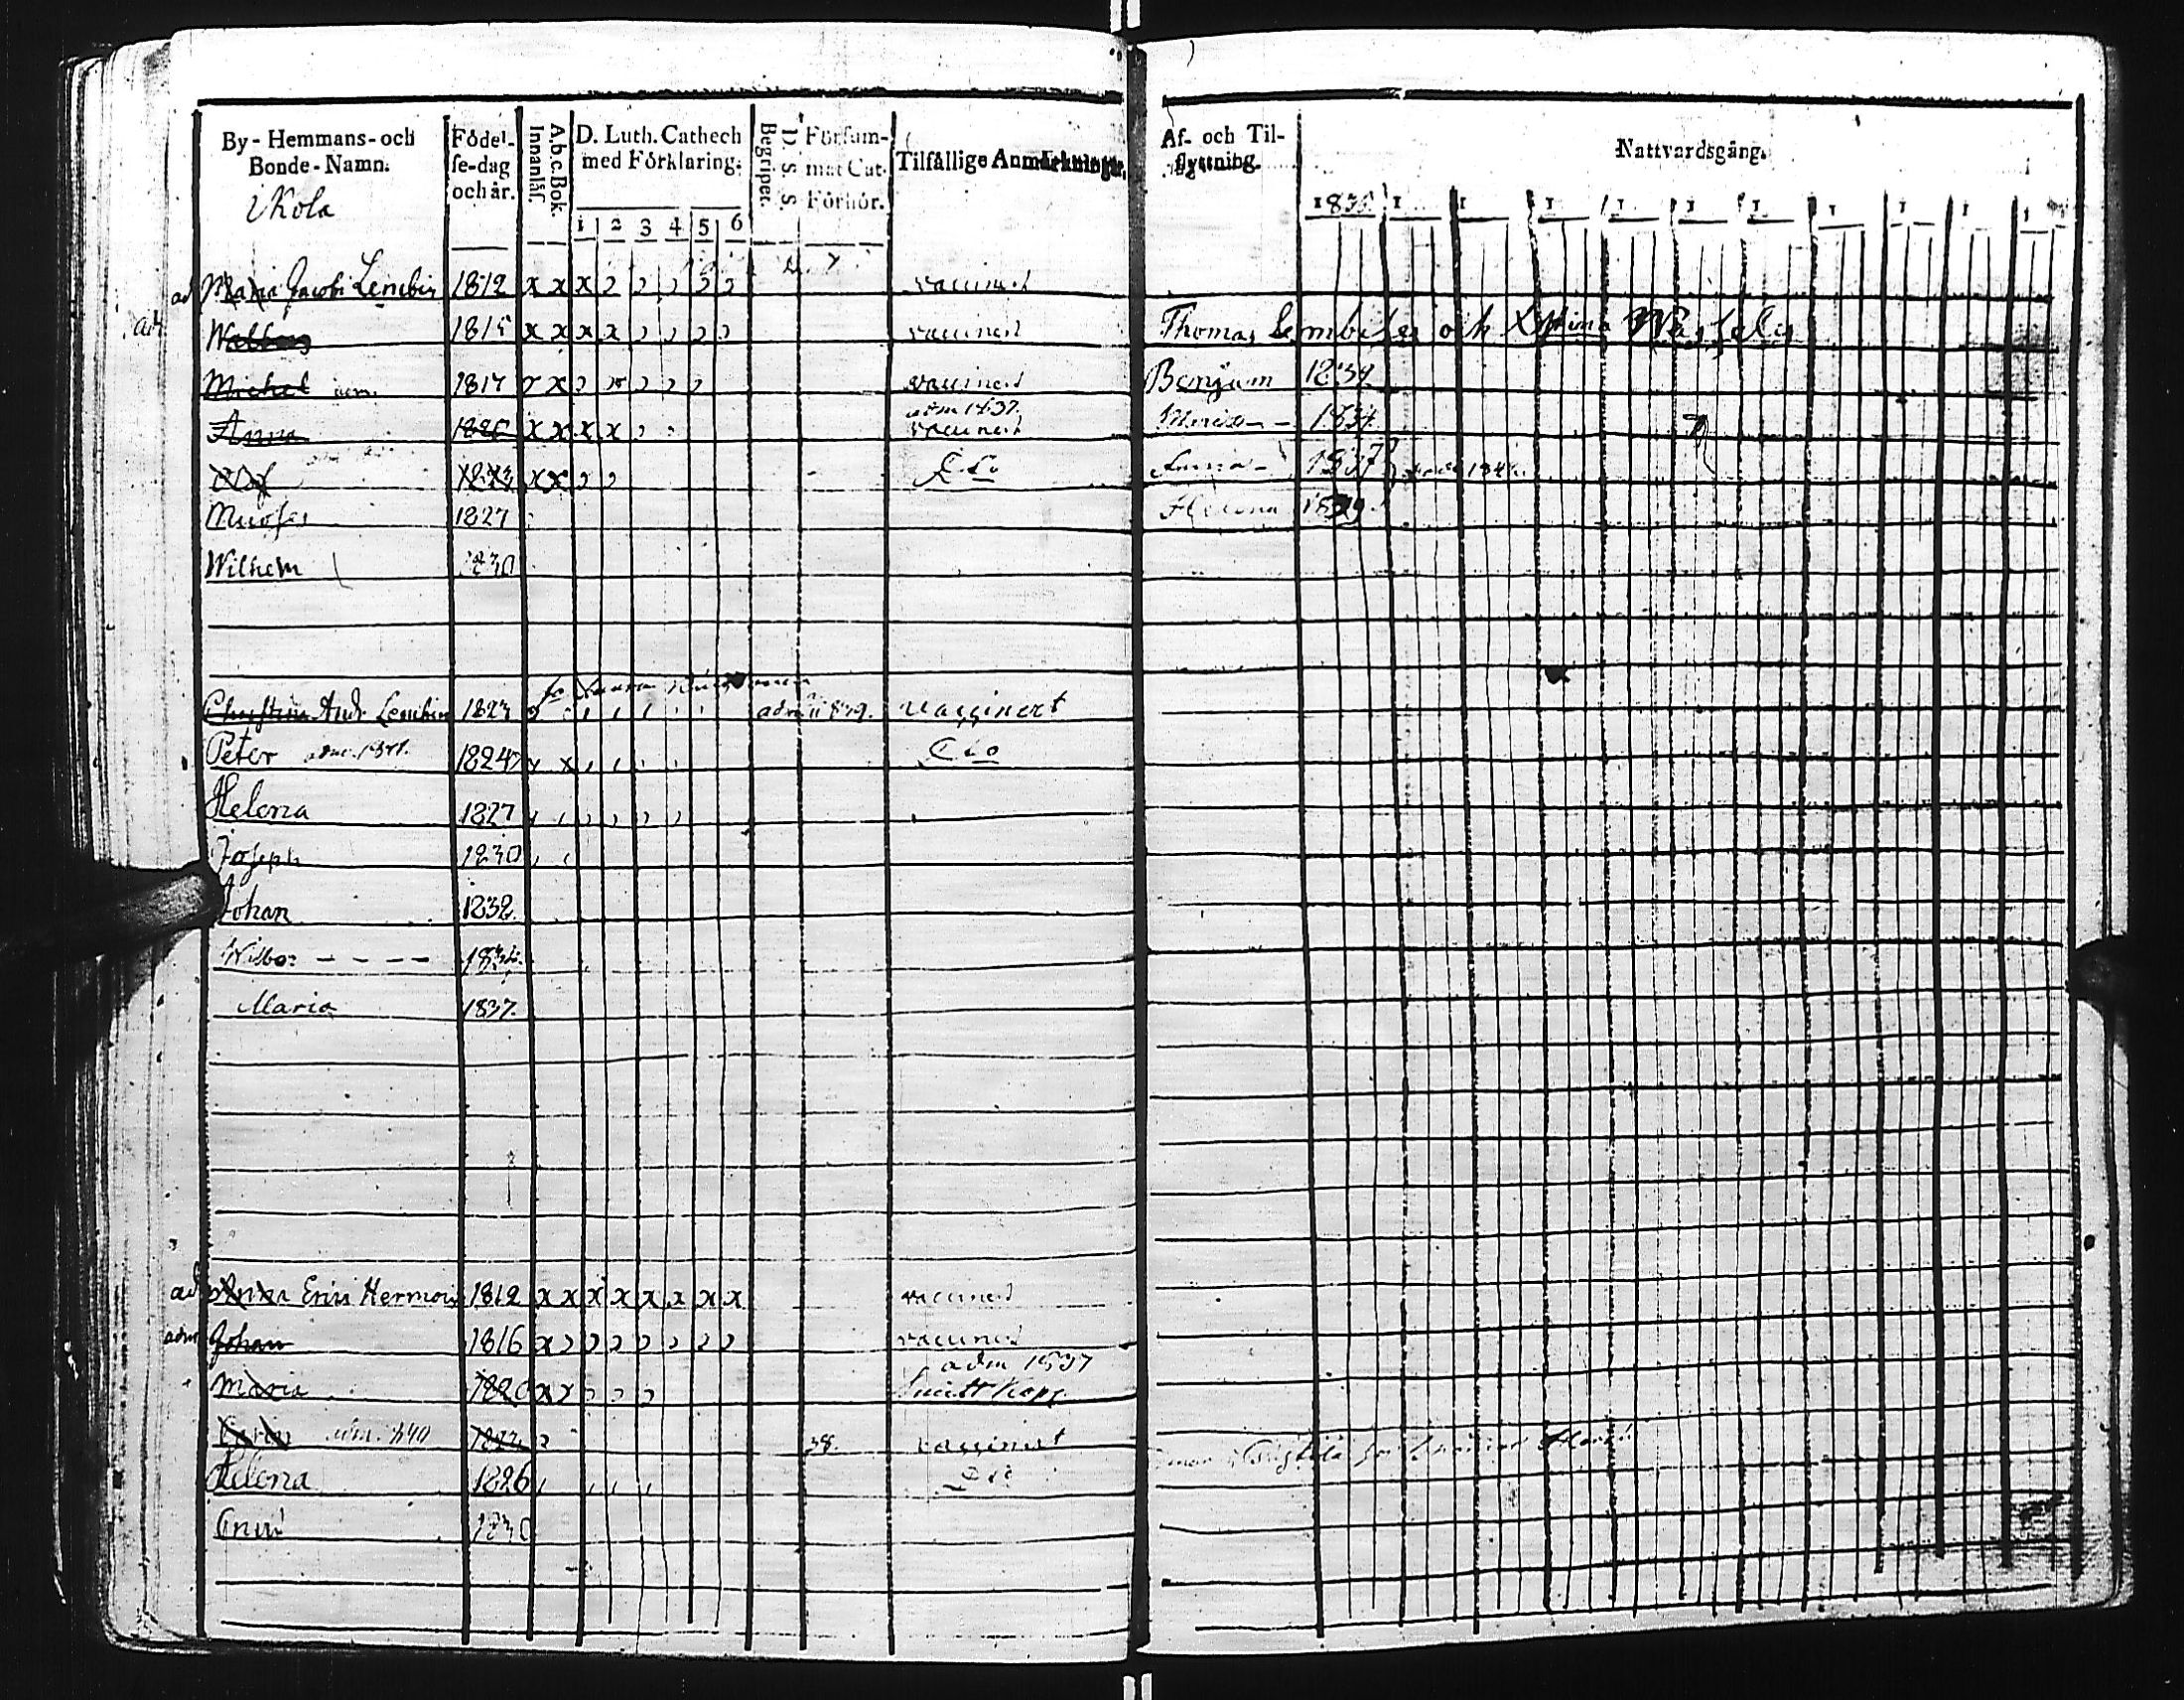 By-Hemmans-och Bonde-Namn. Födel-se-dag och år. A.b.c.Bok. Innanläs. D. Luth. Cathech med Förklaring. D. S. S. Begriper. Försum-mat Cat. Förhör. Tilfällige Anmärkningar.
Kola
1 2 3 4 5 6
ad Maria Jacobi Lembin 1812 x x x vaccinerd
adm Walborg 1815 x x x x vaccinerd
Michel 1817 x vaccinerd
adm 1837.
Anna 1820 x x x x vaccinerd
Olof 1823 x x Dito
Mårses 1827
Wilhelm 1830
Christina Andr Lembin 1823 adm 1839. vaccinert
Peter adm. 1841. 1824 x x Dito
Helena 1827
Joseph 1830
Johan 1832
Wilbor - - - - 1834
Maria 1837.
ad Anna Erici Hermoin 1812 x x x x x x x x vaccinerd
adm Johan 1816 x vaccinerd
adm 1837
Maria 1820 x x Smitt Kopp.
Carin adm. 1840 1822 38. vaccinert
Helena 1826 Dito
Erici 1830
Af- och Til-flyttning. Nattvardsgång.
1835 1 1 1 1 1 1 1 1 1 1
Thomas Lembises och Xstina
Benjam 1834
Maria - 1834
Anna - 1837
Helena 1839